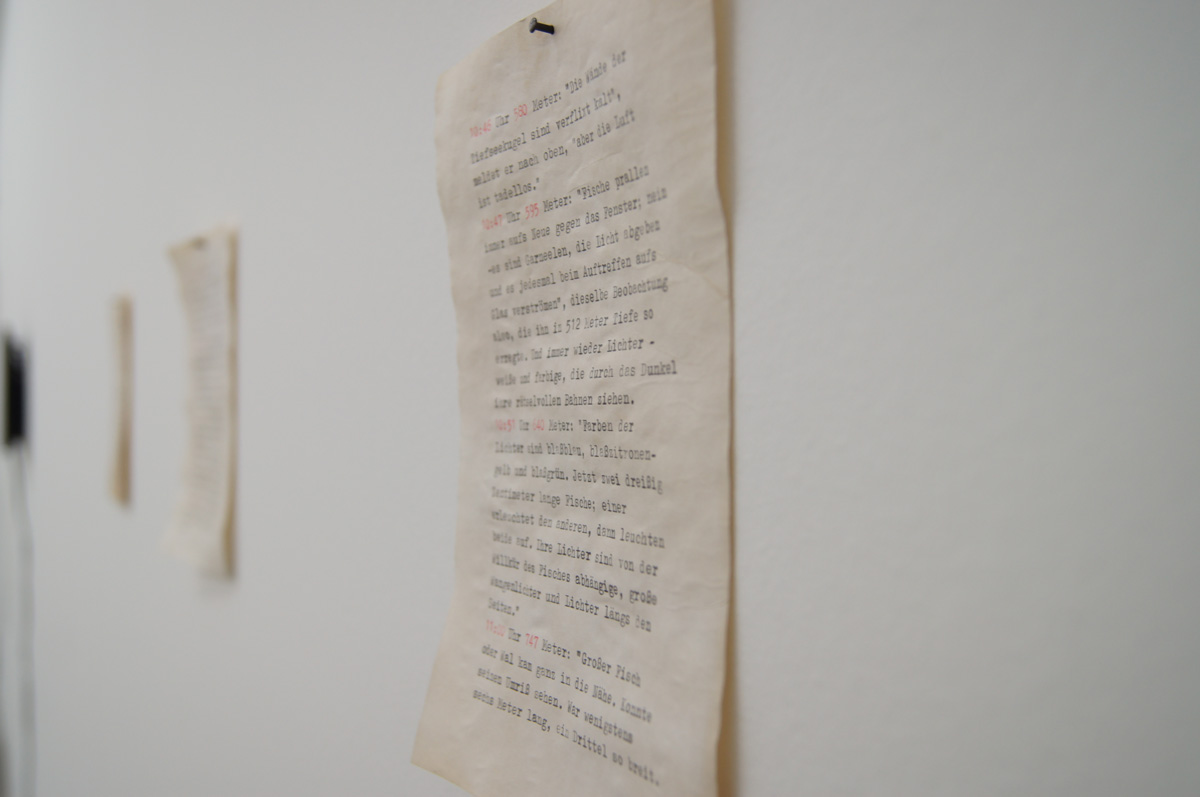 Uhr 580 Meter: "Die Wände der
Tiefseekugel sind verflixt kalt",
meldet er nach oben, "aber die Luft
ist tadellos."
10:47 Uhr 595 Meter: "Fische prallen
immer aufs Neue gegen das Fenster; nein
-es sind Garneelen, die Licht abgeben
und es jedesmal beim Auftreffen aufs
Glas verströmen", dieselbe Beobachtung
also, die ihn in 512 Meter Tiefe so
erregte. Und immer wieder Lichter -
weiße und farbige, die durch das Dunkel
ihre rätselvollen Bahnen ziehen.
Uhr 640 Meter: "Farben der
Lichter sind blaßblau, blaßzitronen-
gelb und blaßgrün. Jetzt zwei dreißig
Zentimeter lange Fische; einer
erleuchtet den anderen, dann leuchten
beide auf. Ihre Lichter sind von der
Willkür des Fisches abhängige, große
Wangenlichter und Lichter längs den
Seiten."
Uhr 747 Meter: "Großer Fisch
oder Wal kam ganz in die Nähe. Konnte
seinen Umriß sehen. War wenigstens
sechs Meter lang, ein Drittel so breit.